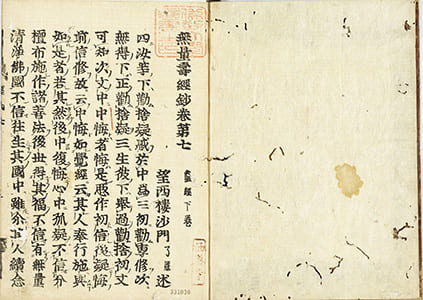 無量壽經鈔卷第七 盡經下卷
望西樓沙門了惠述
四汝等下勸捨疑惑於中爲三初勸專修次
無得下正勸捨疑三生彼下舉過勸捨初文
可知次文中中悔者悔是惡作初信後疑悔
前信修故云中悔如覺經云其人奉行施與
如是者若其然後中復悔心中狐疑不信分
檀布施作諸善法後世得其福不信有無量
清淨佛國不信往生其國中雖尒其人續念
331036